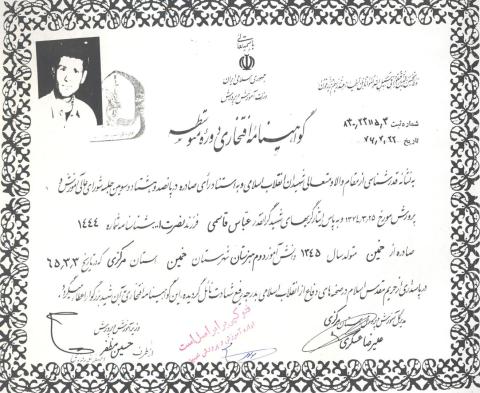 باسمه تعالی
جمهوری اسلامی ایران
وزارت آموزش و پرورش
شماره ثبت ۸۳۰,۲۲۱۵,۳
تاریخ ۷۶,۲,۲۲
گواهینامه افتخاری دوره متوسطه
به نشانه قدرشناسی از مقام والا و متعالی شهیدان انقلاب اسلامی و به استناد رأی صادره در پانصد و هشتاد و سومین جلسه شورای عالی آموزش و
پرورش مورخ ۱۳۷۴,۳,۲۵ و به پاس ایثارگریهای شهید گرانقدر عباس قاسمی فرزند نصرت اله بشناسنامه شماره ۱۴۴۴
صادره از خمین متولد سال ۱۳۴۵ دانش آموز دوم دبیرستان شهرستان خمین استان مرکزی که در تاریخ ۶۵,۳,۳
در پاسداری از حریم مقدس اسلام در صحنه های دفاع از انقلاب اسلامی به درجه رفیع شهادت نائل گردیده، این گواهینامه افتخاری به آن شهید بزرگوار اعطا می گردد.
مدیرکل آموزش و پرورش استان مرکزی
علیرضا عسگری
وزیر آموزش و پرورش
از طرف حسین مظفر
فتوکپی برابر اصل است
اداره آموزش و پرورش خمین